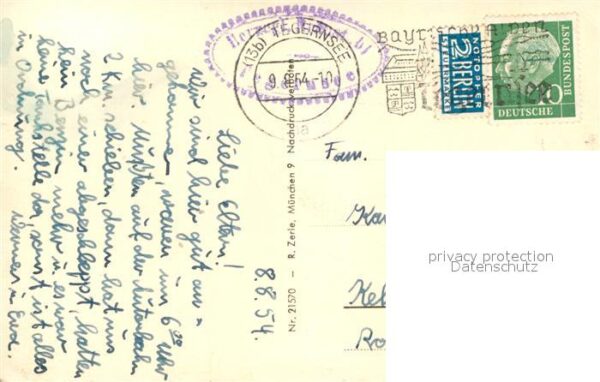 (13b) TEGERNSEE
9.8.54-10
a
Bayrischzell
NOTOPFER
2 BERLIN
STEUERMARKE
DEUTSCHE
BUNDESPOST
10
8.8.54.
Liebe Eltern!
Wir sind hier gut an-
gekommen, waren um 6 00 Uhr
hier. Mußten auf der Autobahn
2 Km schieben, dann hat uns
noch einer abgeschleppt, hatten
kein Benzin mehr u. es war
keine Tankstelle da, sonst ist alles
in Ordnung.
Werner u. Eva.
Nr. 21570 - R. Zerle, München 9 Nachdruck verboten
Fam.
Ka
Kel
Ro
privacy protection
Datenschutz